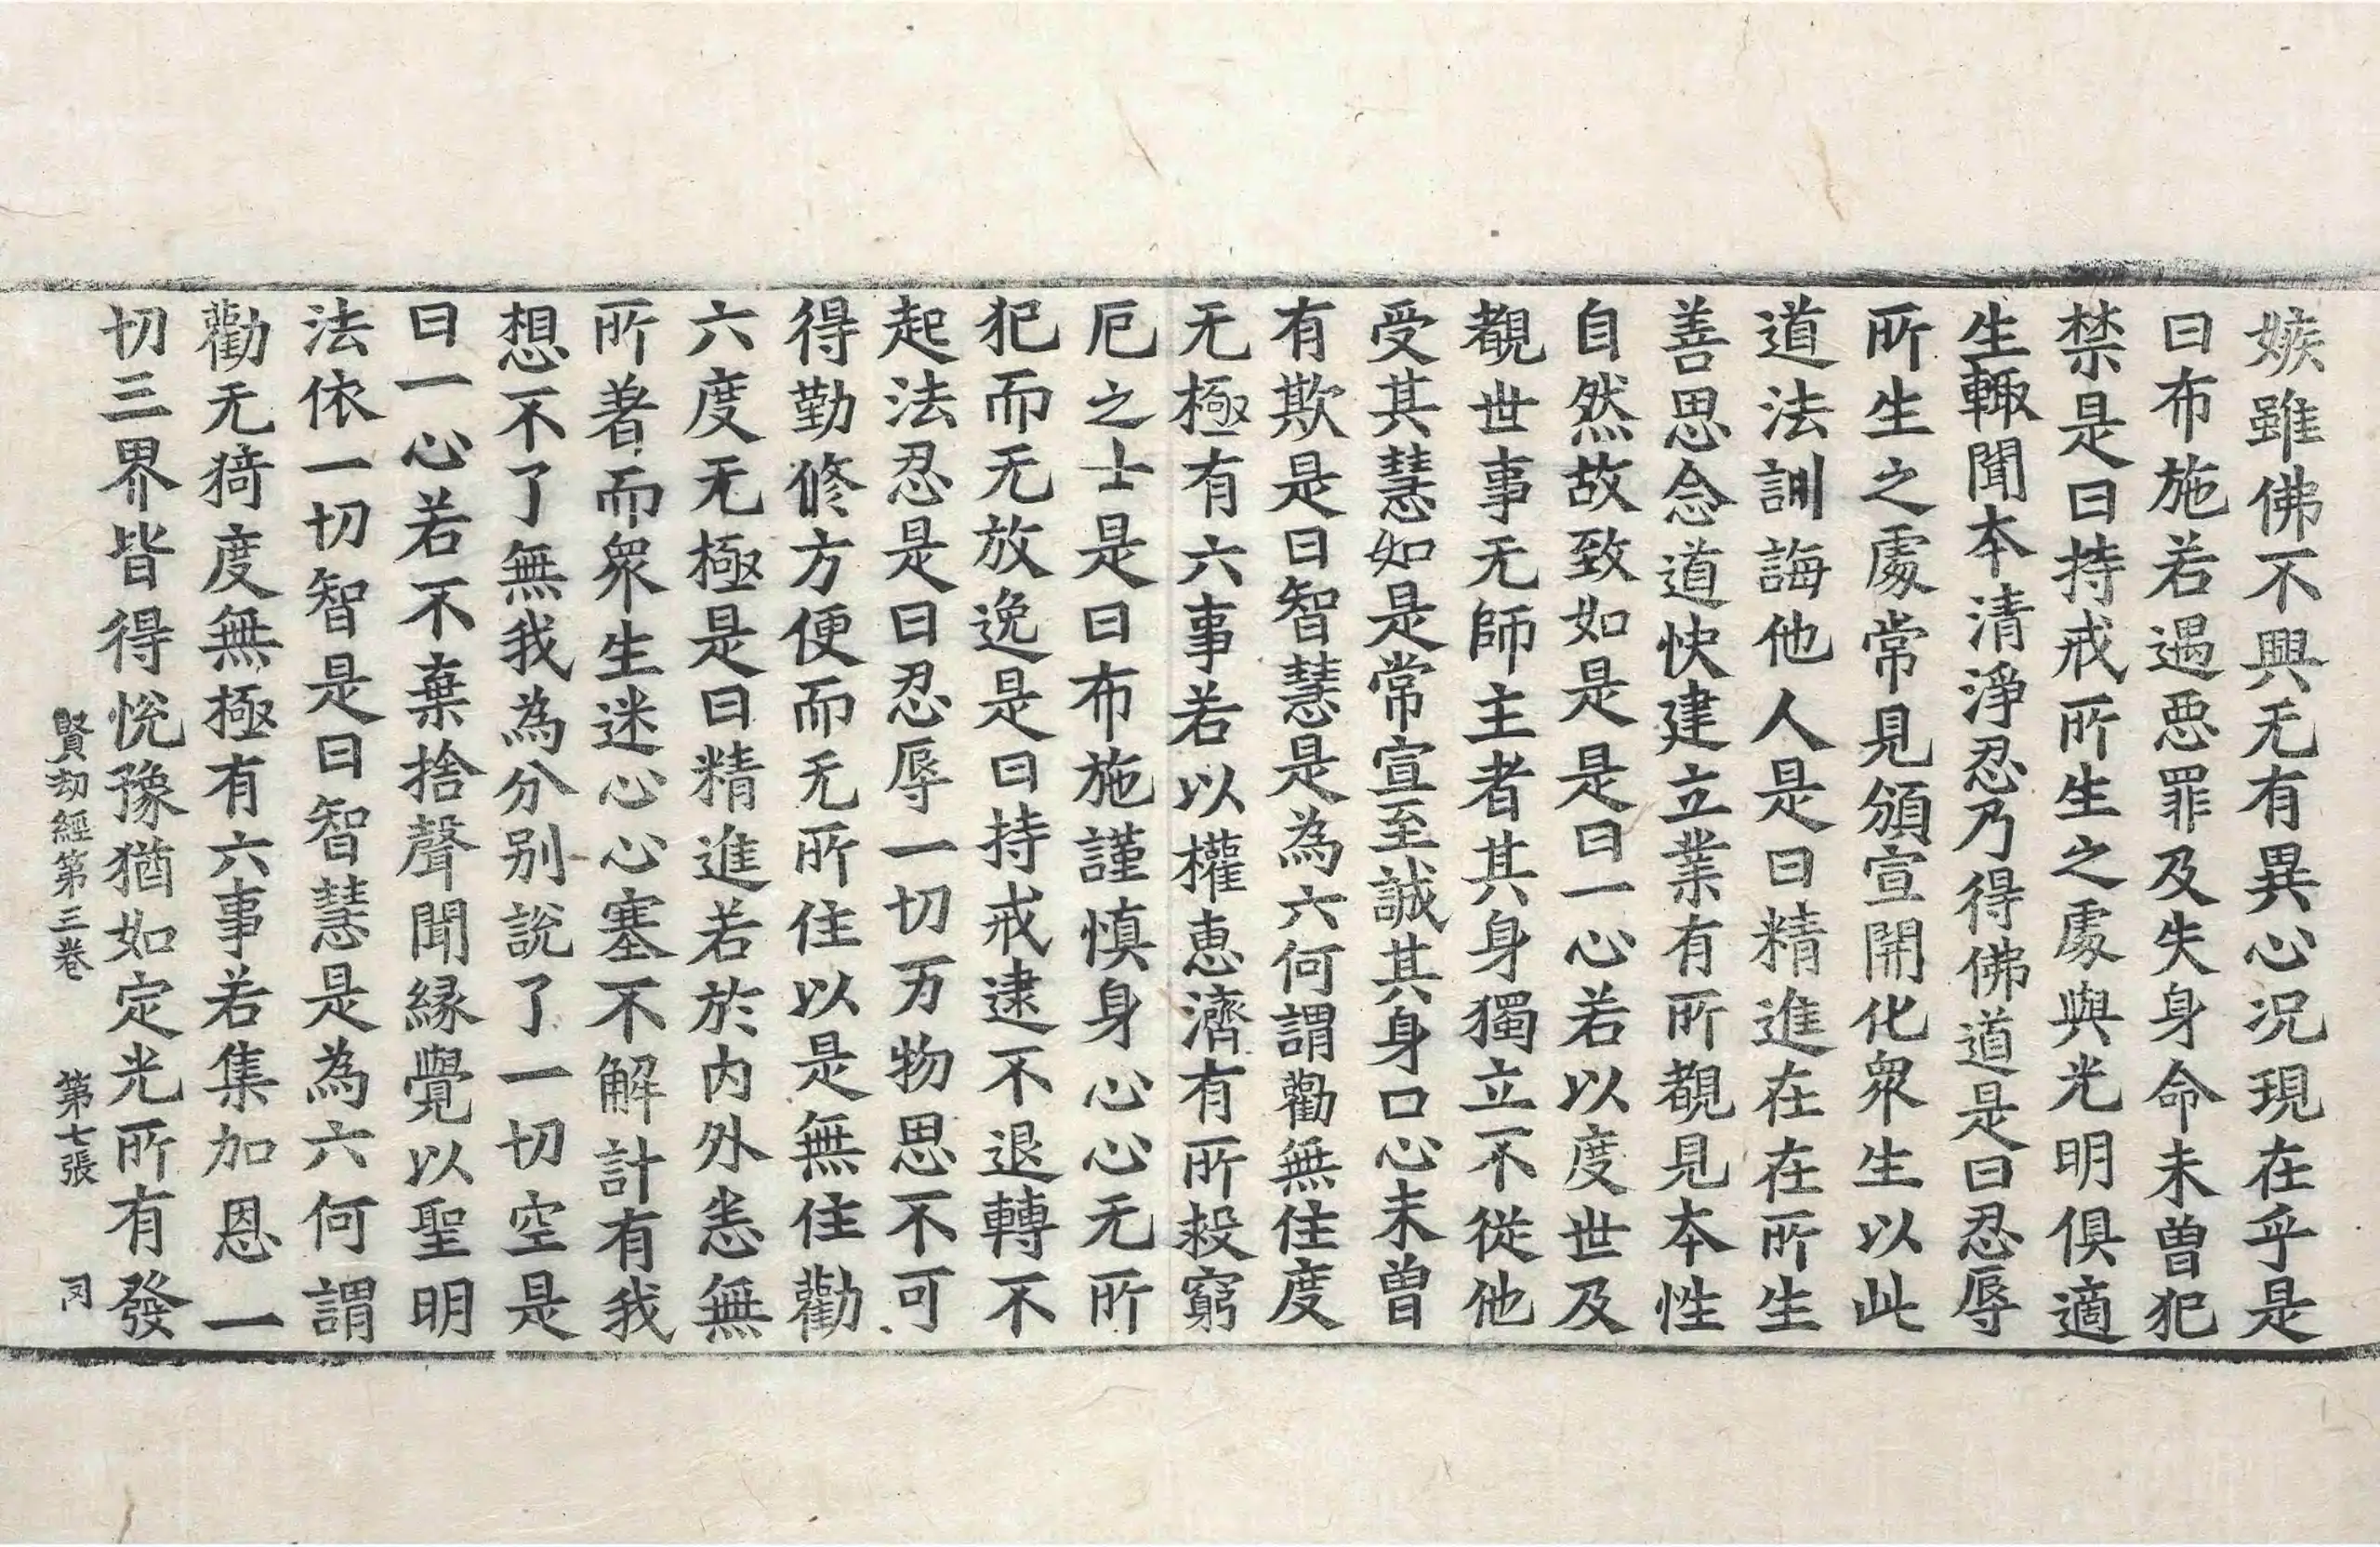 嫉雖佛不興无有異心況現在乎是
曰布施若遇惡罪及失身命未曾犯
禁是曰持戒所生之處與光明俱適
生輙聞本清淨忍乃得佛道是曰忍辱
所生之處常見頒宣開化衆生以此
道法訓誨他人是曰精進在在所生
善思念道快建立業有所覩見本性
自然故致如是是曰一心若以度世及
覩世事无師主者其身獨立不從他
受其慧如是常宣至誠其身口心未曾
有欺是曰智慧是為六何謂勸無住度
无極有六事若以權恵濟有所投窮
厄之士是曰布施謹慎身心心无所
犯而无放逸是曰持戒逮不退轉不
起法忍是曰忍辱一切万物思不可
得勤修方便而无所住以是無住勸
六度无極是曰精進若於内外恙無
所著而衆生迷心心塞不解計有我
想不了無我為分别說了一切空是
曰一心若不棄捨聲聞緣覺以聖明
法依一切智是曰智慧是為六何謂
勸无猗度無極有六事若集加恩一
切三界皆得悅豫猶如定光所有發
賢劫經第三卷 第七張